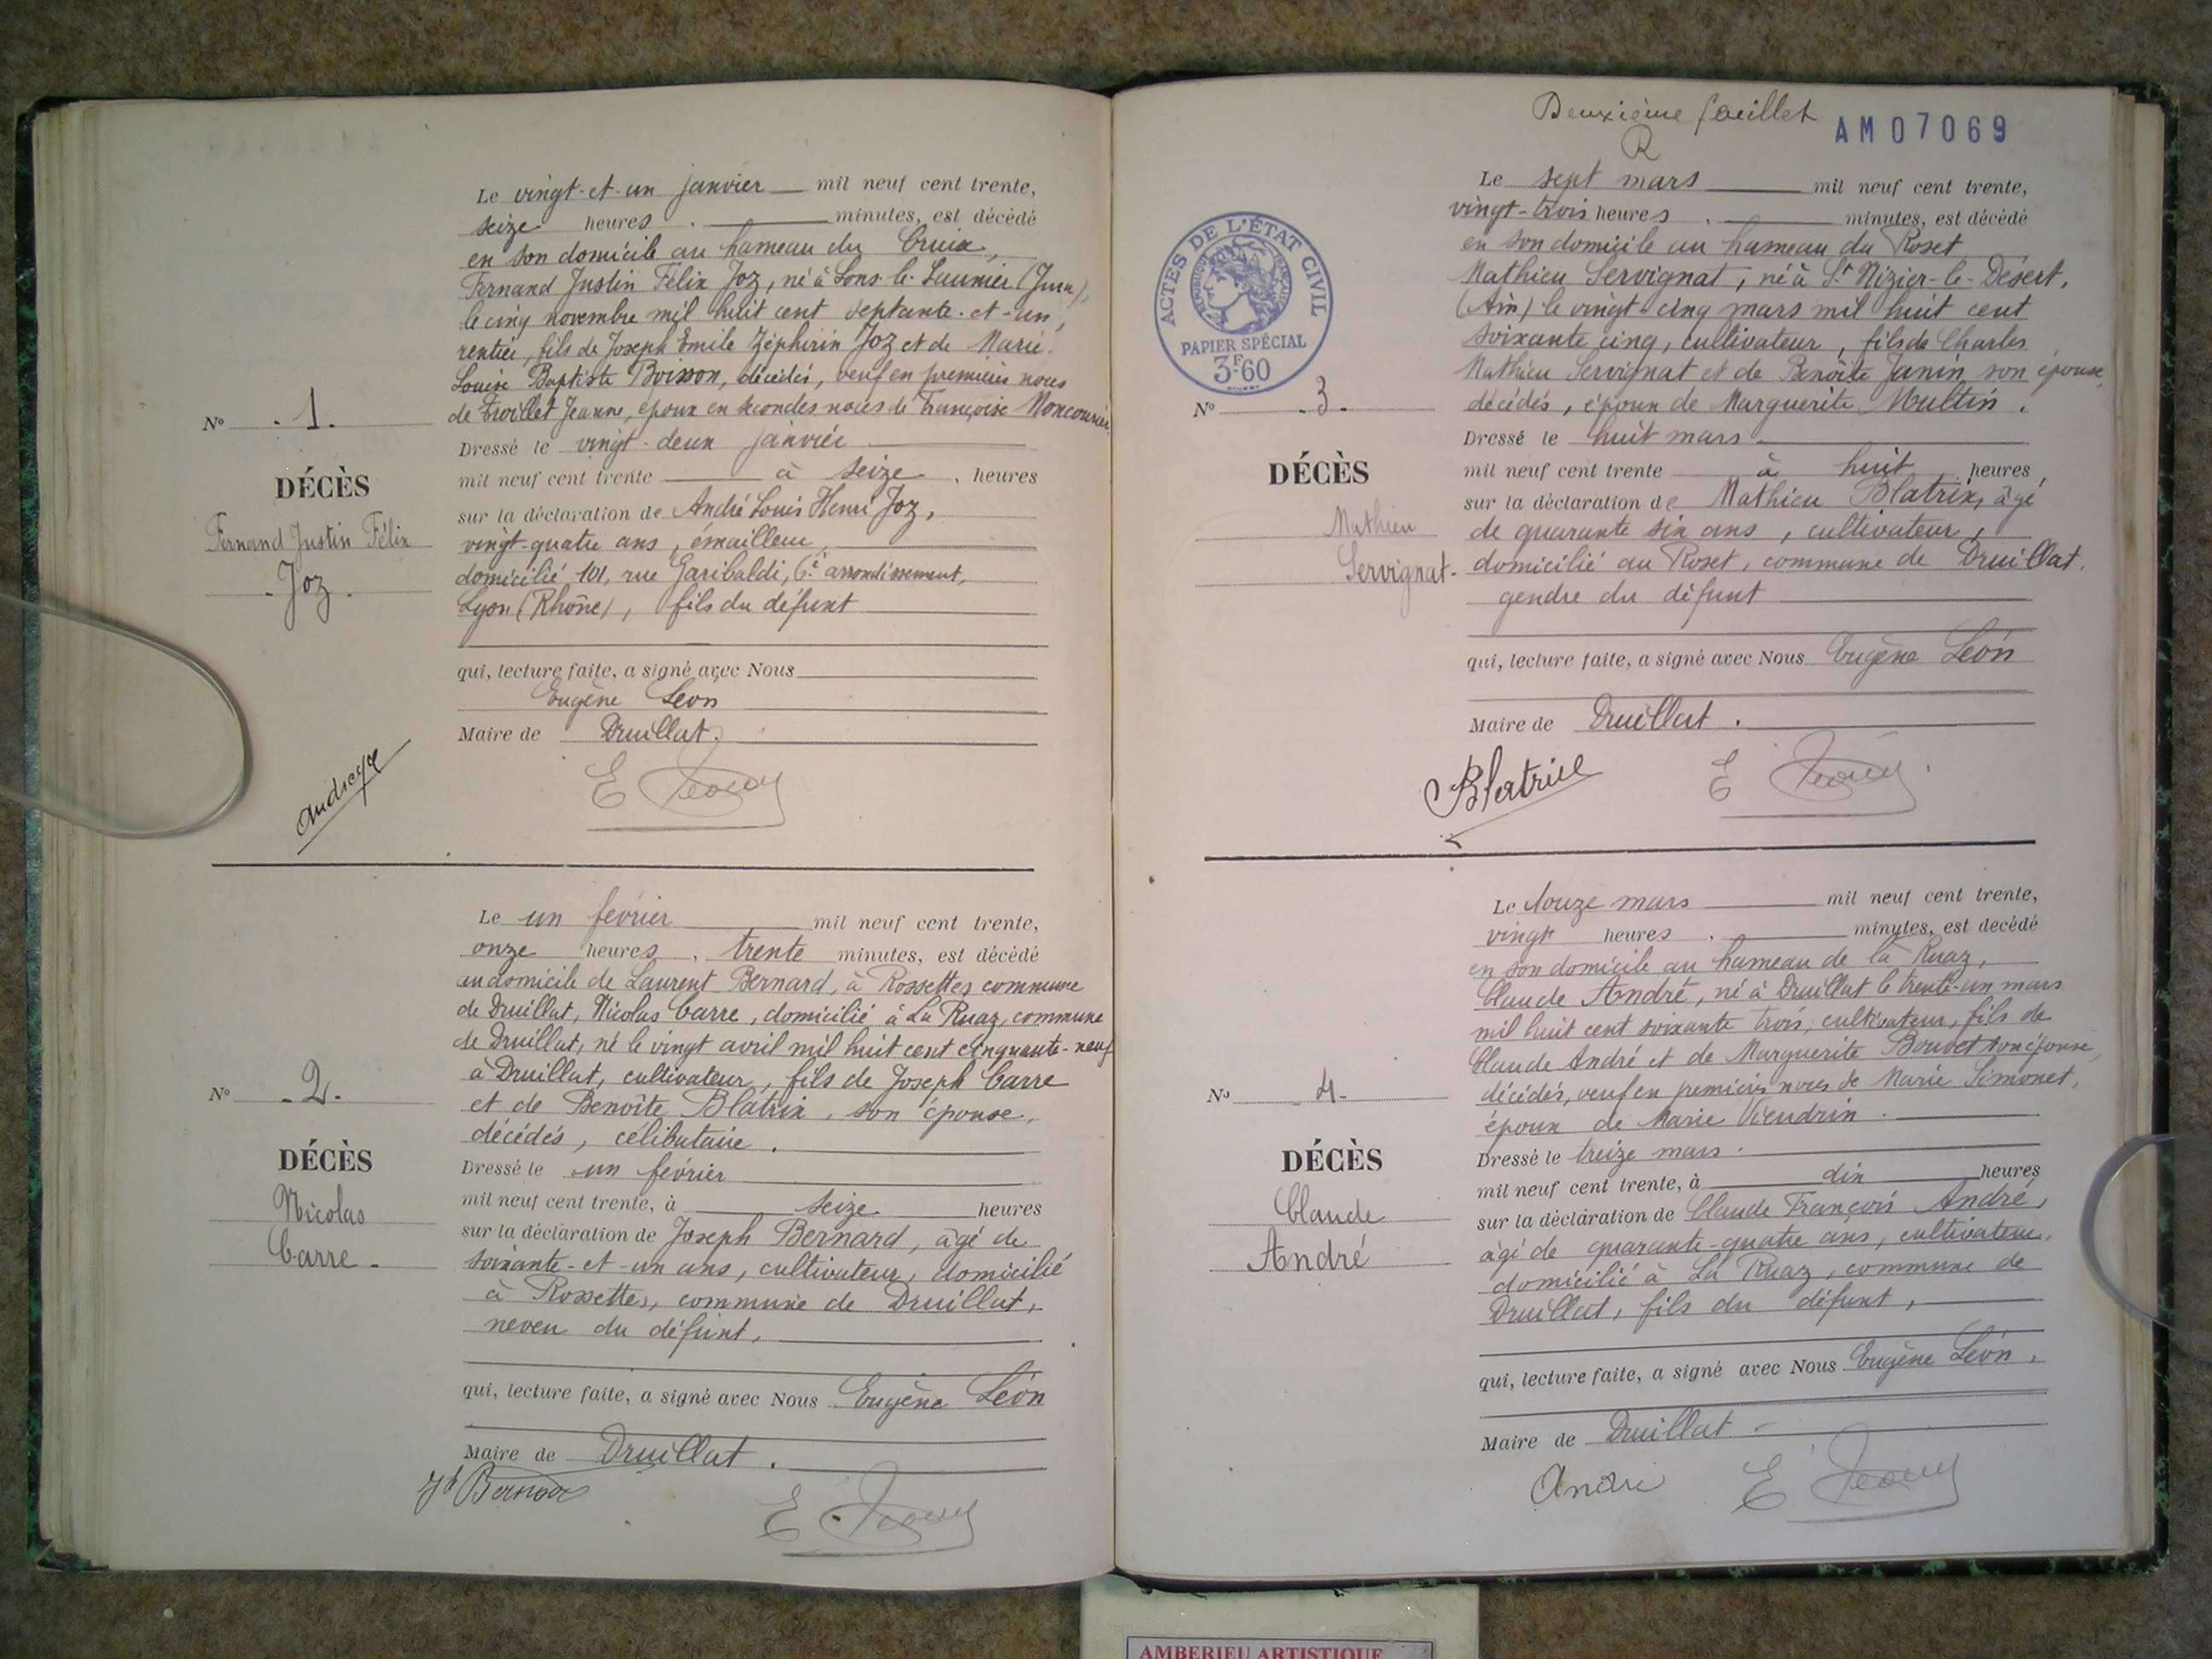 Le vingt-et-un janvier mil neuf cent trente,
seize heures minutes, est décédé
en son domicile au hameau du Cruix,
Fernand Justin Félix Joz, né à Lons-le-Saunier (Jura),
le cinq novembre mil huit cent septante-et-un,
rentier, fils de Joseph Emile Zéphirin Joz et de Marie
Louise Baptiste Boisson, décédés, veuf en premières noces
de Jeanne, époux en secondes noces de Françoise
Nº 1.
Dressé le vingt-deux janvier
mil neuf cent trente à seize, heures
DÉCÈS
Fernand Justin Félix
Joz.
sur la déclaration de André Louis Henri Joz,
vingt-quatre ans, émailleur,
domicilié 101, rue Garibaldi, 6e arrondissement,
Lyon (Rhône), fils du défunt
qui, lecture faite, a signé avec Nous
Eugène Léon
Maire de Druillat.
E Léon
Le un février mil neuf cent trente,
onze heures, trente minutes, est décédé
au domicile de Laurent Bernard, à Rossettes commune
de Druillat, Nicolas Carre, domicilié à La Ruaz, commune
de Druillat, né le vingt avril mil huit cent cinquante-neuf
à Druillat, cultivateur, fils de Joseph Carre
et de Benoîte Blatrix, son épouse,
décédés, célibataire.
Nº 2.
DÉCÈS
Nicolas
Carre
Dressé le un février
mil neuf cent trente, à seize heures
sur la déclaration de Joseph Bernard, âgé de
soixante-et-un ans, cultivateur, domicilié
à Rossettes, commune de Druillat,
neveu du défunt,
qui, lecture faite, a signé avec Nous Eugène Léon
Maire de Druillat.
Jh Bernard
E Léon
Deuxième feuillet
AM07069
R
ACTES DE L'ÉTAT CIVIL
RÉPUBLIQUE FRANÇAISE
PAPIER SPÉCIAL
3F60
Le sept mars mil neuf cent trente,
vingt-trois heures minutes, est décédé
en son domicile au hameau du Roset
Mathieu Servignat, né à St Nizier-le-Désert,
(Ain) le vingt-cinq mars mil huit cent
soixante cinq, cultivateur, fils de Charles
Mathieu Servignat et de Benoîte Janin son épouse,
décédés, époux de Marguerite Multin.
Nº 3.
DÉCÈS
Mathieu
Servignat.
Dressé le huit mars
mil neuf cent trente à huit, heures,
sur la déclaration de Mathieu Blatrix, âgé
de quarante six ans, cultivateur,
domicilié au Roset, commune de Druillat,
gendre du défunt
qui, lecture faite, a signé avec Nous Eugène Léon
Maire de Druillat.
Blatrix
E Léon
Le douze mars mil neuf cent trente,
vingt heures minutes, est decédé
en son domicile au hameau de la Ruaz,
Claude André, né à Druillat le trente-un mars
mil huit cent soixante trois, cultivateur, fils de
Claude André et de Marguerite Bouvet son épouse,
décédés, veuf en premières noces de Marie Simonet,
époux de Marie Vendrin.
Nº 4.
DÉCÈS
Claude
André
Dressé le treize mars.
mil neuf cent trente, à dix heures
sur la déclaration de Claude François André,
âgé de quarante-quatre ans, cultivateur,
domicilié à La Ruaz, commune de
Druillat, fils du défunt,
qui, lecture faite, a signé avec Nous Eugène Léon.
Maire de Druillat
André
E Léon
AMBERIEU ARTISTIQUE